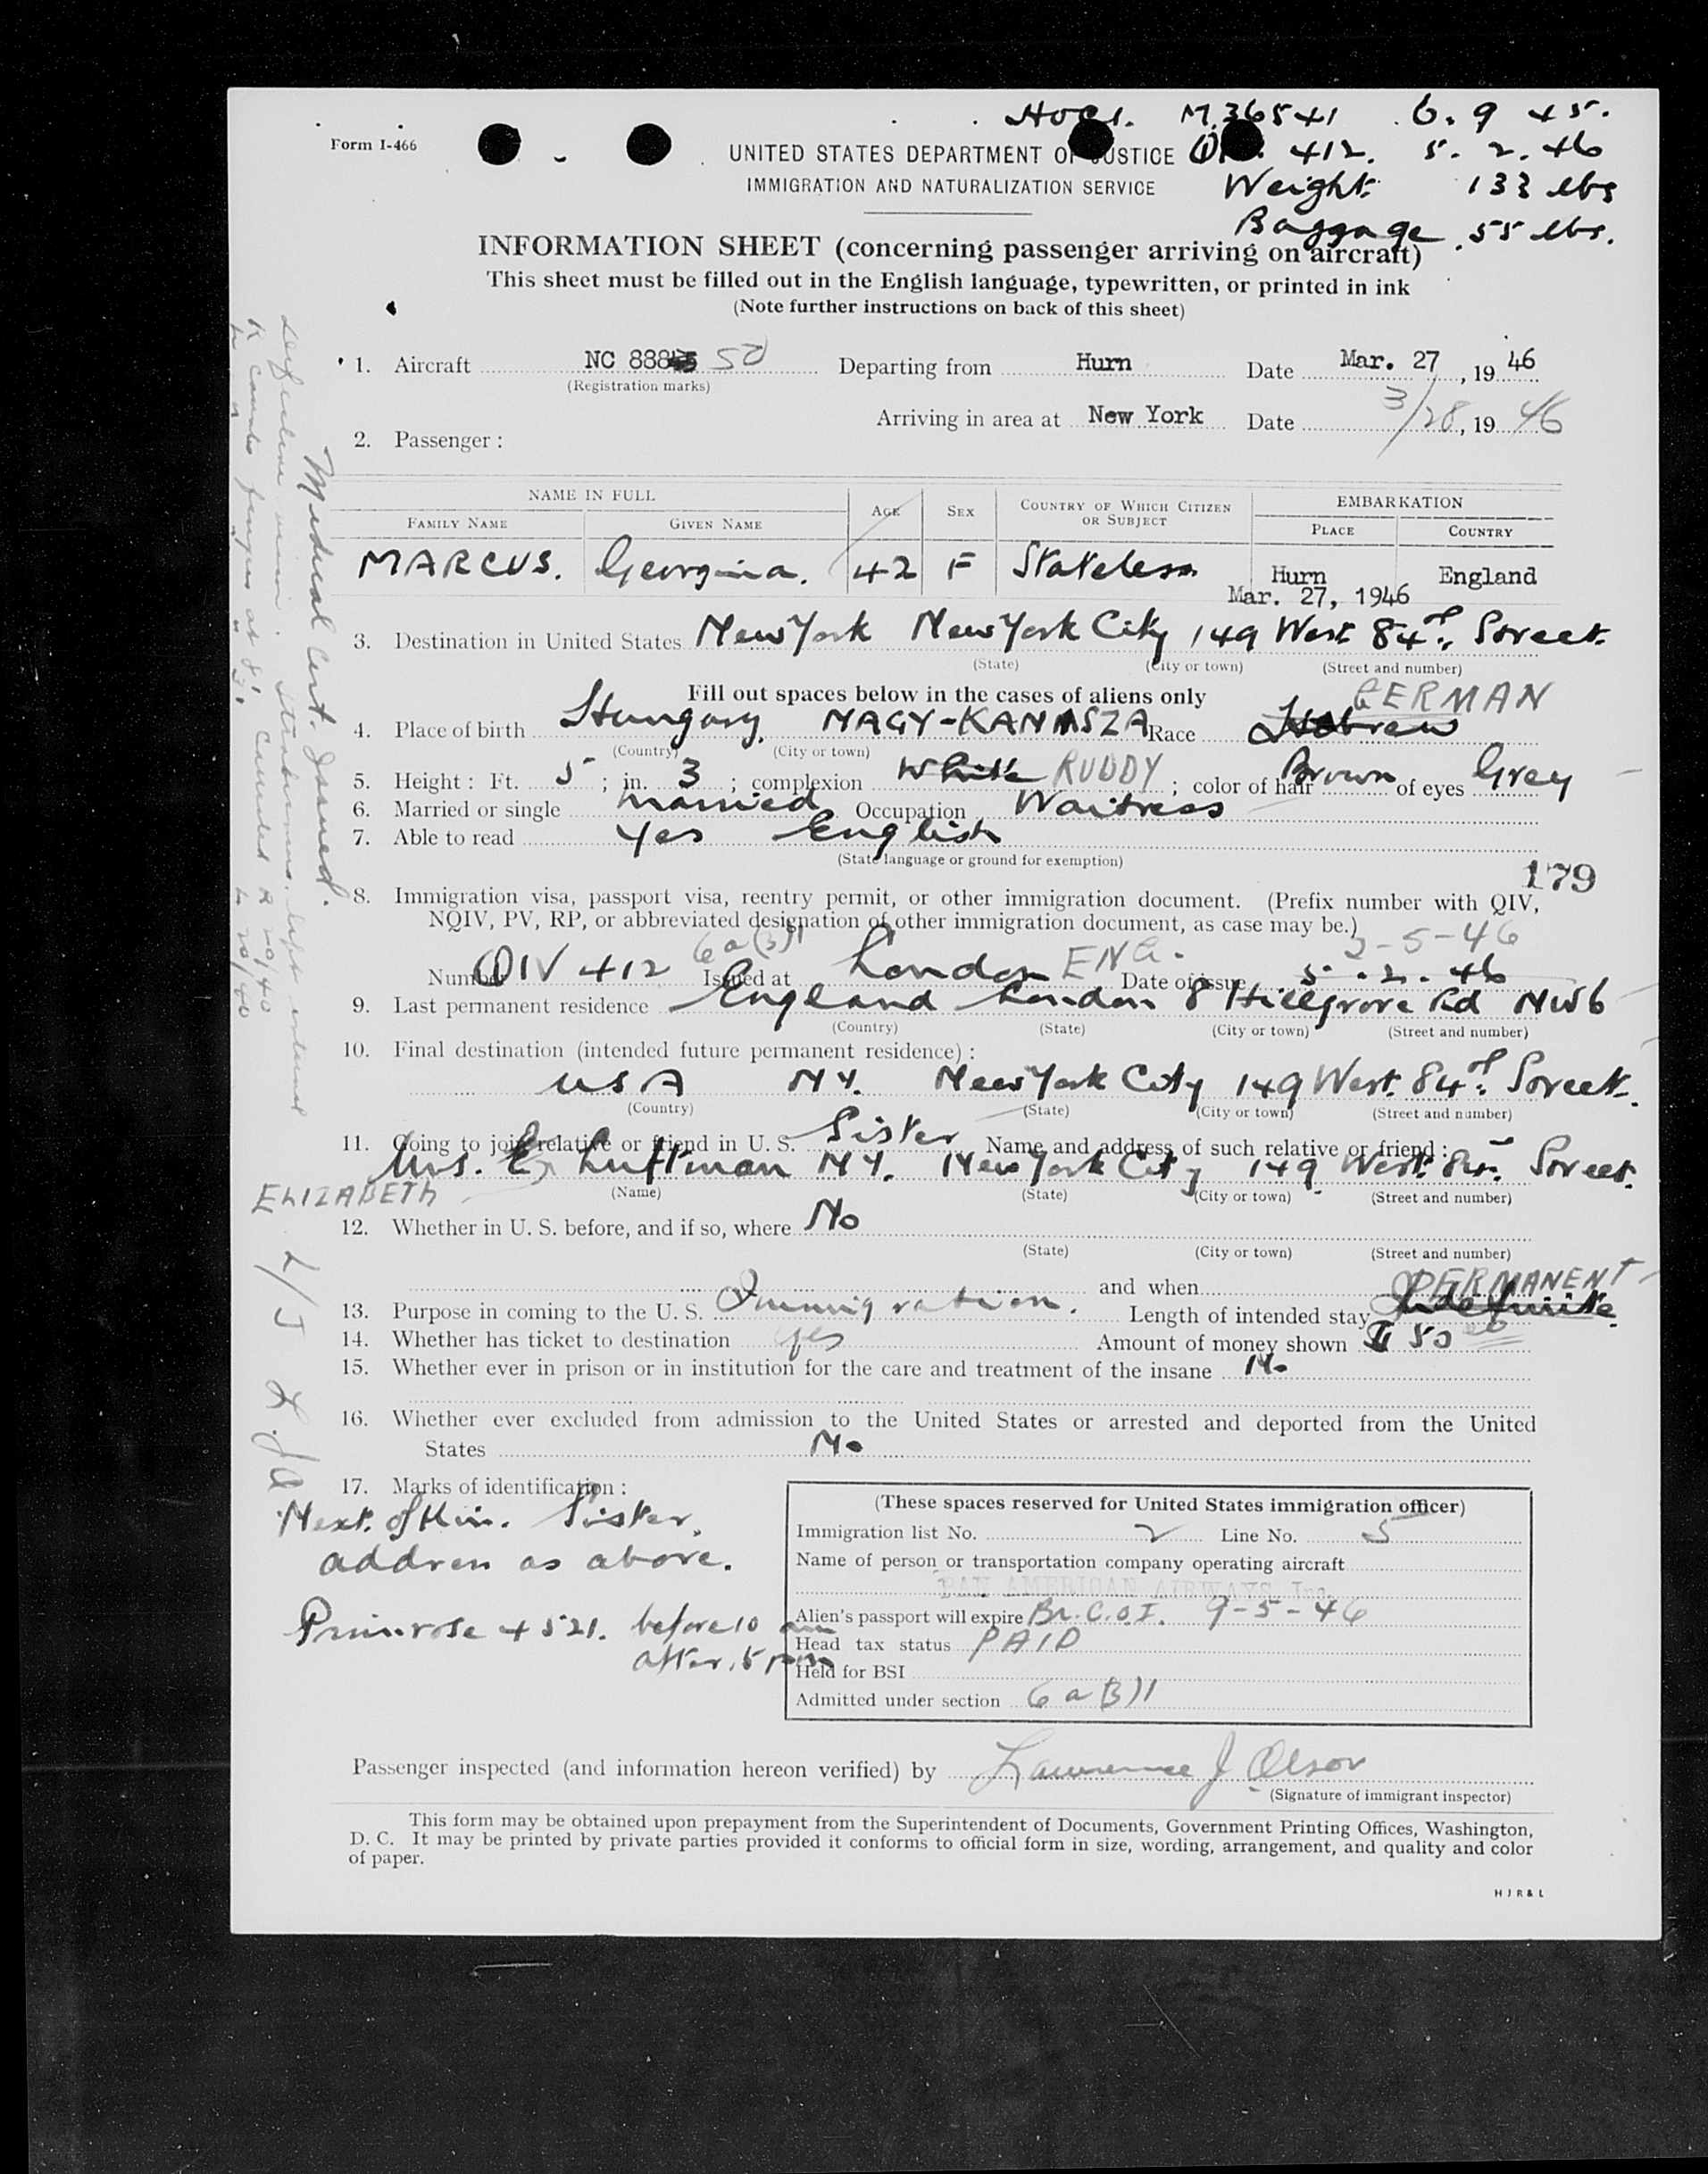 M.36541 6.9 45.
Form I-466
UNITED STATES DEPARTMENT OF JUSTICE 412. 5.2.46
IMMIGRATION AND NATURALIZATION SERVICE Weight. 133 lbs
Baggage 55 lbs.
INFORMATION SHEET (concerning passenger arriving on aircraft)
This sheet must be filled out in the English language, typewritten, or printed in ink
(Note further instructions on back of this sheet)
1. Aircraft NC 888 50 Departing from Hurn Date Mar. 27, 19 46
(Registration marks)
Arriving in area at New York Date 3/28, 19 46
2. Passenger :
NAME IN FULL AGE SEX COUNTRY OF WHICH CITIZEN OR SUBJECT EMBARKATION
FAMILY NAME GIVEN NAME PLACE COUNTRY
MARCUS. Georgina. 42 F Stateless Hurn England
Mar. 27, 1946
3. Destination in United States New York New York City 149 West 84th Street
(State) (City or town) (Street and number)
Fill out spaces below in the cases of aliens only
GERMAN
4. Place of birth Hungary. NAGY-KANISZA Race Hebrew
(Country) (City or town)
5. Height : Ft. 5 ; in. 3 ; complexion White RUDDY ; color of hair Brown of eyes Grey
6. Married or single married Occupation Waitress
7. Able to read Yes English
(State language or ground for exemption)
179
8. Immigration visa, passport visa, reentry permit, or other immigration document. (Prefix number with QIV,
NQIV, PV, RP, or abbreviated designation of other immigration document, as case may be.)
6a(3)1 2-5-46
Number QIV 412 Issued at London ENG. Date of issue 5.2.46
9. Last permanent residence England London 8 Hillgrove Rd NW6
(Country) (State) (City or town) (Street and number)
10. Final destination (intended future permanent residence) :
USA NY. New York City 149 West 84th Street.
(Country) (State) (City or town) (Street and number)
11. Going to join relative or friend in U. S. Sister Name and address of such relative or friend :
Mrs. E. Luftman NY. New York City 149 West 84 Street.
ELIZABETH (Name) (State) (City or town) (Street and number)
12. Whether in U. S. before, and if so, where No
(State) (City or town) (Street and number)
and when
PERMANENT
13. Purpose in coming to the U. S. Immigration. Length of intended stay Indefinite.
14. Whether has ticket to destination yes Amount of money shown $ 50
15. Whether ever in prison or in institution for the care and treatment of the insane No
16. Whether ever excluded from admission to the United States or arrested and deported from the United
States No
17. Marks of identification :
Next of Kin. Sister.
address as above.
Primrose 4521. before 10 am
after 5 pm
(These spaces reserved for United States immigration officer)
Immigration list No. 2 Line No. 5
Name of person or transportation company operating aircraft
PAN AMERICAN AIRWAYS Inc.
Alien's passport will expire Br. C. of I. 9-5-46
Head tax status PAID
Held for BSI
Admitted under section 6a(3)1
Passenger inspected (and information hereon verified) by Lawrence J Olson
(Signature of immigrant inspector)
This form may be obtained upon prepayment from the Superintendent of Documents, Government Printing Offices, Washington,
D. C. It may be printed by private parties provided it conforms to official form in size, wording, arrangement, and quality and color
of paper.
H J R & L
Medical Cert. Issued.
Defective vision. Strabismus. left external
R counts fingers at 8'. Corrected R 20/40
L 20/40